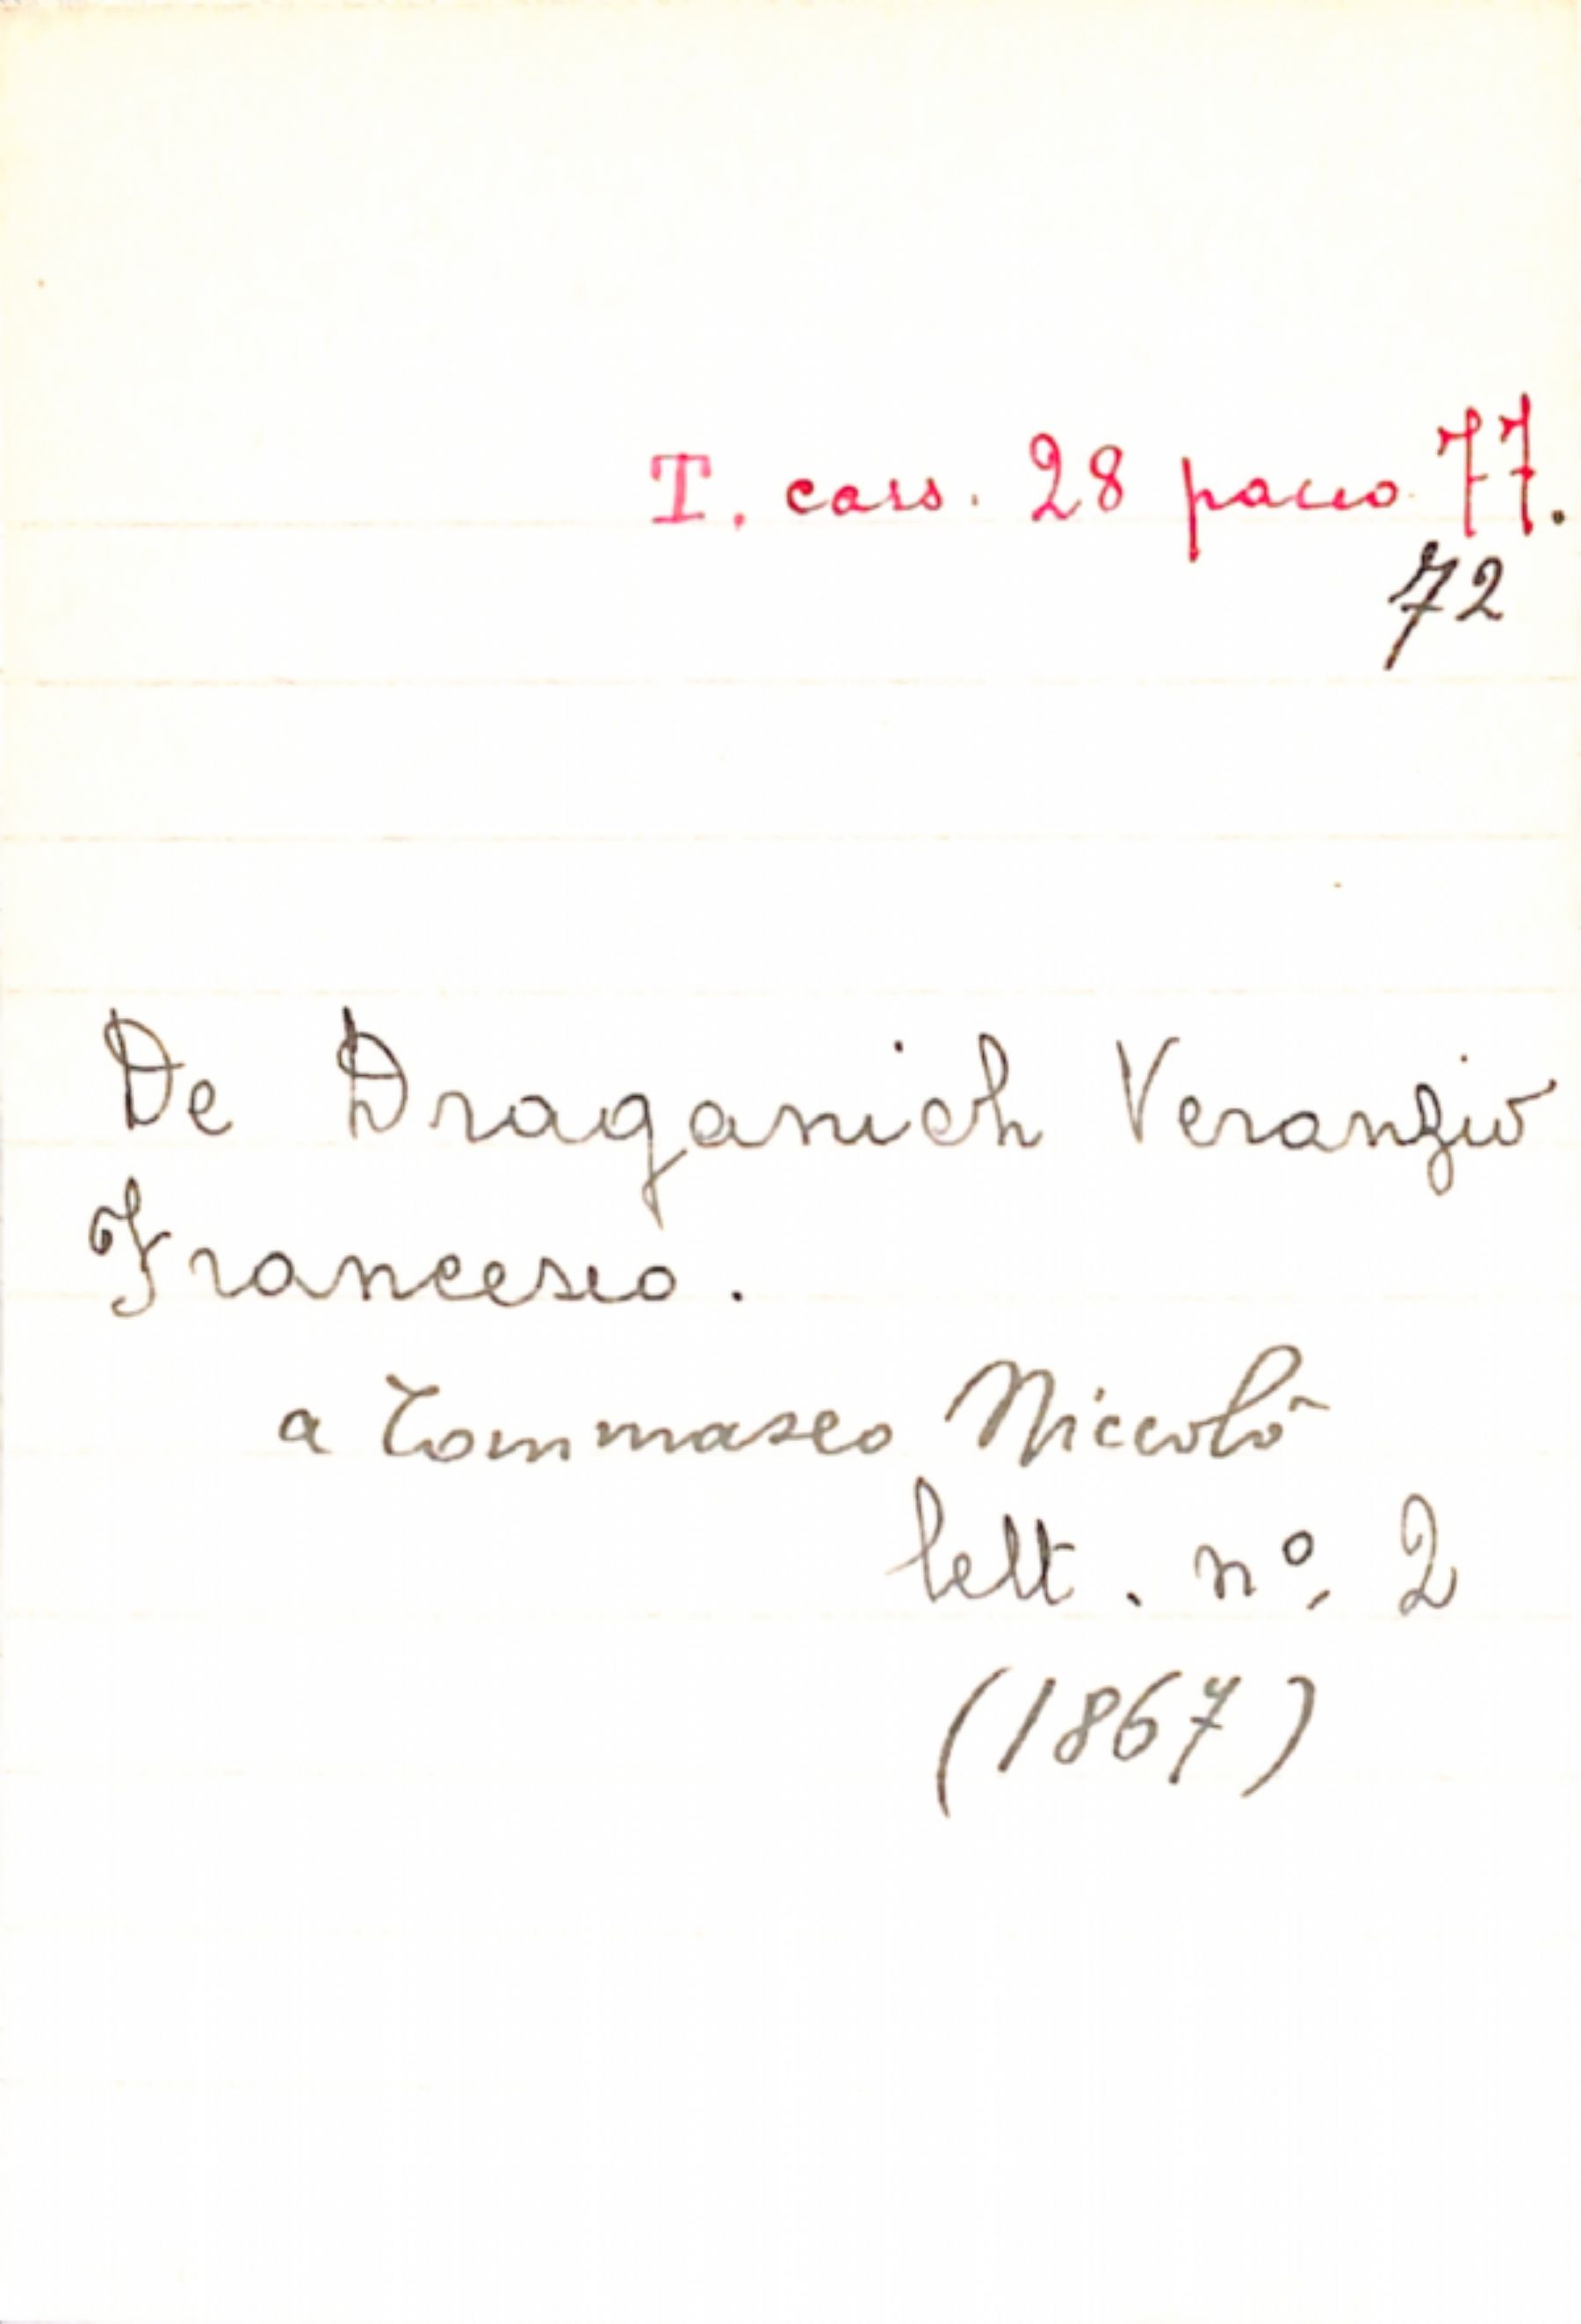 T. cass. 28 pacco 77.
72
De Draganich Veranzio
Francesco.
a Tommaseo Niccolò
lett. nº. 2
(1867)